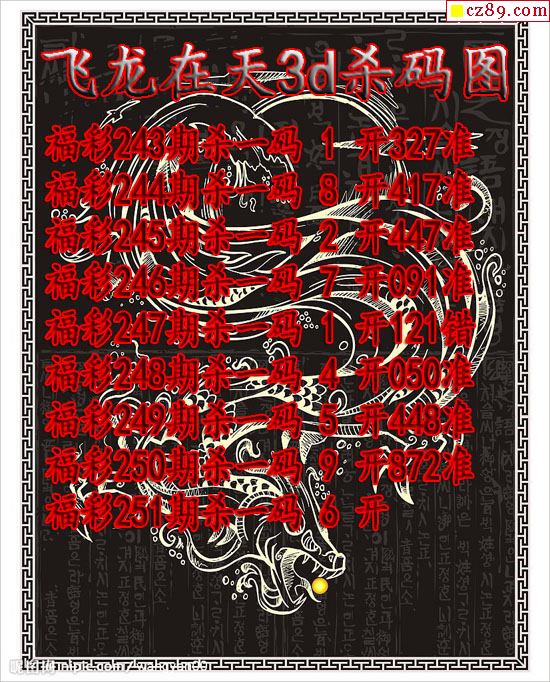 cz89.com
飞龙在天3d杀码图
福彩243期杀一码 1 开327准
福彩244期杀一码 8 开417准
福彩245期杀一码 2 开447准
福彩246期杀一码 7 开091准
福彩247期杀一码 1 开121错
福彩248期杀一码 4 开050准
福彩249期杀一码 5 开448准
福彩250期杀一码 9 开872准
福彩251期杀一码 6 开